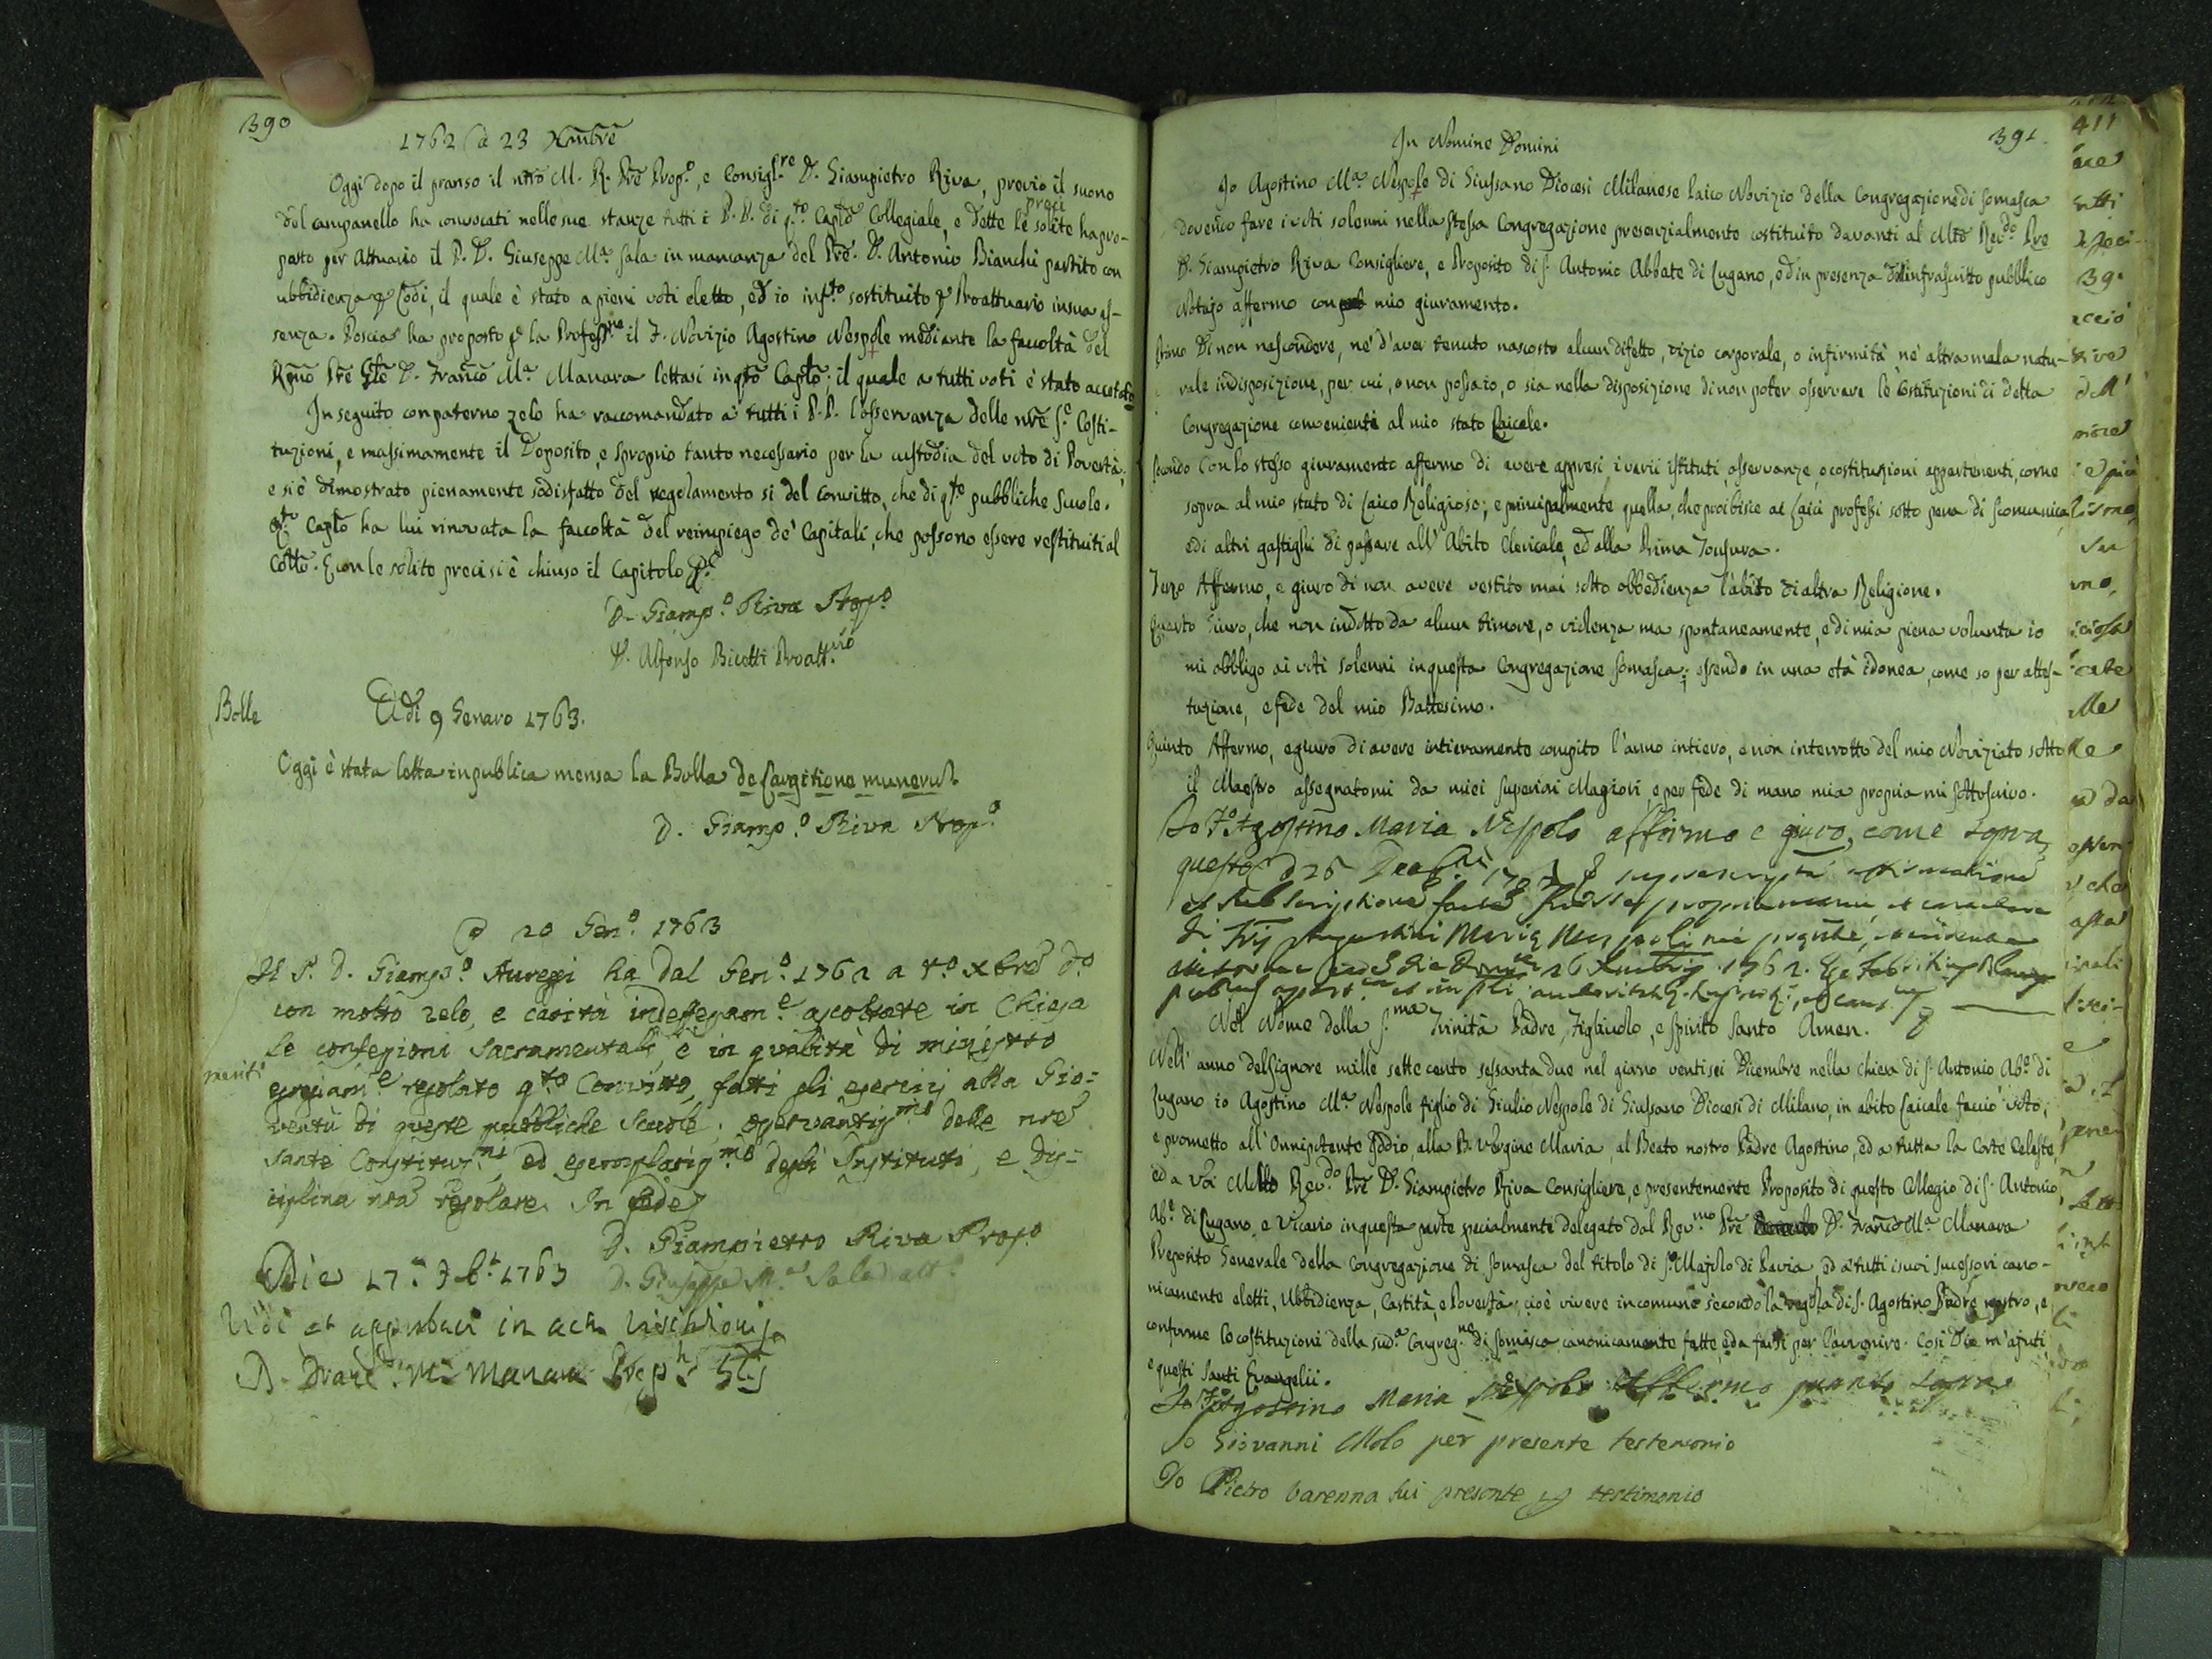 390
1762 a 23 Xmbre
Oggi dopo il pranso il nro M. R. Pre Prop.o, e Consigl.re D. Giampietro Riva, previo il suono
del campanello ha convocati nelle sue stanze tutti i P.P. di q.to Caplo Collegiale, e dette le solite preci ha pro-
posto per Attuario il P. D. Giuseppe M.a Sala in mancanza del Pre D. Antonio Bianchi partito con
ubbidienza p Lodi, il quale è stato a pieni voti eletto, ed io inf.to sostituito p Proattuario in sua as-
senza. Poscia ha proposto p la Profess.ne il F. Novizio Agostino Nespole mediante la facoltà del
Rmo Pre Gle D. Franco M.a Manara lettasi in qto Caplo; il quale a tutti voti è stato accettato
In seguito con paterno zelo ha raccomandato a tutti i P.P. l'osservanza delle nre S.e Costi-
tuzioni, e massimamente il Deposito, e sproprio tanto necessario per la custodia del voto di Povertà;
e si è dimostrato pienamente sodisfatto del regolamento si del convitto, che di q.te pubbliche scuole.
Q.to Caplo ha lui rinovata la facoltà del reimpiego de' Capitali, che possono essere restituiti al
Collo. E con le solite preci si è chiuso il Capitolo
D. Giamp.o Riva Prop.o
D. Alfonso Bicetti Proatt.rio
Bolle
Adi 9 Genaro 1763.
Oggi è stata letta in publica mensa la Bolla de Largitione munerum
D. Giamp.o Riva Prop.o
a 20 Gen.o 1763
Il P. D. Giamp.o Aureggi ha dal Gen.o 1762 a t.o Xbre d.o
con molto zelo, e carità indefessam.e ascoltate in Chiesa
le confessioni sacramentali, e in qualità di ministro
meriti
egregiam.e regolato q.to Convitto, fatti gli esercizi alla Gio-
ventù di queste pubbliche scuole, osservantiss.mo delle nre
sante Constituz.ni, ed esemplariss.mo degli Instituti, e dis-
ciplina nra regolare. In fede
D. Giampietro Riva Prop.o
D. Giuseppe M.a Sala att.o
Die 17.a 7b.s 1763
Vidi et approbavi in actu Visitationis
D. Franc. M.a Manara Prep.s Glis
391.
In Nomine Domini
Io Agostino M.a Nespole di Giussano Diocesi Milanese laico Novizio della Congregazione di Somasca
dovendo fare i voti solenni nella stessa Congregazione presenzialmente costituito davanti al Mto Rev.do Pre
D. Giampietro Riva Consigliere, e Proposito di S. Antonio Abbate di Lugano, ed in presenza dell'infrascritto pubblico
Notajo affermo con mio giuramento.
Primo Di non nascondere, nè d'aver tenuto nascosto alcun difetto, vizio corporale, o infirmità nè altra mala natu-
rale indisposizione, per cui, o non possa io, o sia nella disposizione di non poter osservare le costituzioni di detta
Congregazione convenienti al mio stato Laicale.
Secondo Con lo stesso giuramento affermo di avere appresi i varii istituti, osservanze, o costituzioni appartenenti, come
sopra al mio stato di Laico Religioso; e principalmente quella, che proibisce ai Laici professi sotto pena di scomunica
ed altri gastighi di passare all'Abito Clericale, ed alla Prima Tonsura.
Terzo Affermo, e giuro di non avere vestito mai sotto obbedienza l'abito di altra Religione.
Quarto Giuro, che non indotto da alcun timore, o violenza ma spontaneamente, e di mia piena volunta io
mi obbligo ai voti solenni in questa Congregazione Somasca; essendo in una età idonea, come so per attes-
tazione, e fede del mio Battesimo.
Quinto Affermo, e giuro di avere intieramente compito l'anno intiero, e non interrotto del mio Noviziato sotto
il Maestro assegnatomi da miei superiori Magiori, e per fede di mano mia propria mi sottoscrivo.
Io F. Agostino Maria Nespolo affermo e giuro, come sopra
questo d 26
et subscriptione propria manu
Augustini Maria Nespoli
26 1762.
Nel Nome della S.ma Trinità Padre, Figliuolo, e Spirito Santo Amen.
Nell'anno del Signore mille sette cento sessanta due nel giorno ventisei Dicembre nella Chiesa di S. Antonio Ab.e di
Lugano io Agostino M.a Nespole figlio di Giulio Nespole di Giussano Diocesi di Milano, in abito Laicale faccio voto,
e prometto all'Onnipotente Iddio, alla B. Vergine Maria, al Beato nostro Padre Agostino, ed a tutta la Corte Celeste,
ed a Voi Molto Rev.do Pre D. Giampietro Riva Consigliere, e presentemente Proposito di questo Collegio di S. Antonio
Ab.e di Lugano, e Vicario in questa parte specialmente delegato dal Rev.mo Pre D. Franco M.a Manara
Preposito Generale della Congregazione di Somasca del titolo di S. Majolo di Pavia, ed a tutti i suoi sucessori cano-
nicamente eletti, Ubbidienza, Castità, e Povertà, cioè vivere in comune secondo la regola di S. Agostino Padre nostro, e
conforme le costituzioni della sud.a Congreg.ne di Somasca canonicamente fatte, e da farsi per l'avvenire. Così Dio m'ajuti,
e questi Santi Evangelii.
Io F. Agostino Maria Nespolo affermo quanto sopra
Io Giovanni Molo per presente testemonio
Io Pietro Varenna fui presente p testimonio
411